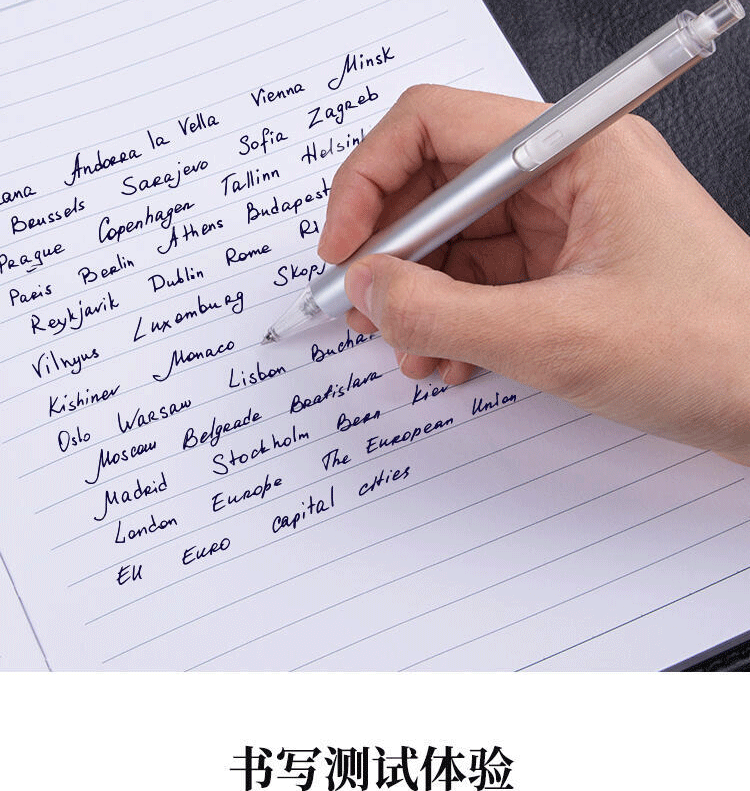 Andorra la Vella Vienna Minsk
Brussels Sarajevo Sofia Zagreb
Prague Copenhagen Tallinn
Paris Berlin Athens Budapest
Reykjavik Dublin Rome
Vilnyus Luxemburg
Kishinev Monaco
Oslo Warsaw Lisbon
Moscow Belgrade Bratislava
Madrid Stockholm Bern Kiev
London Europe The European Union
EU EURO capital cities
书写测试体验